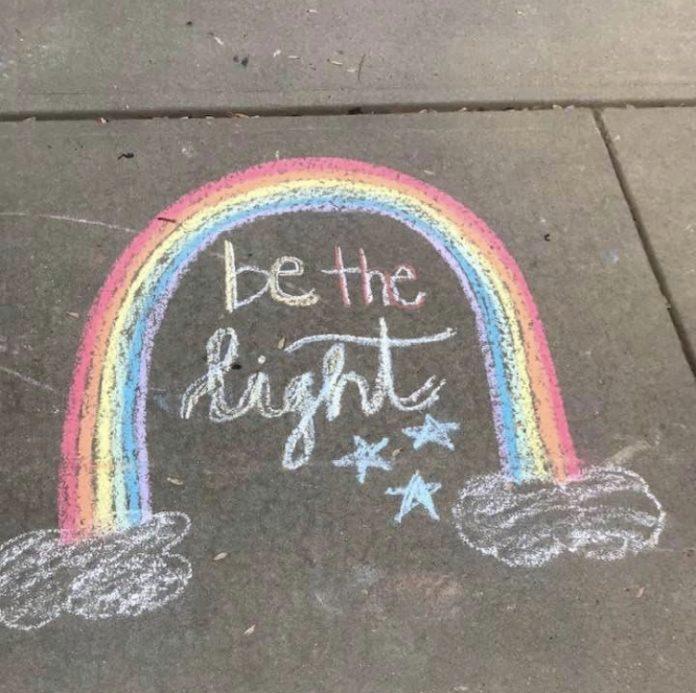 be the
light